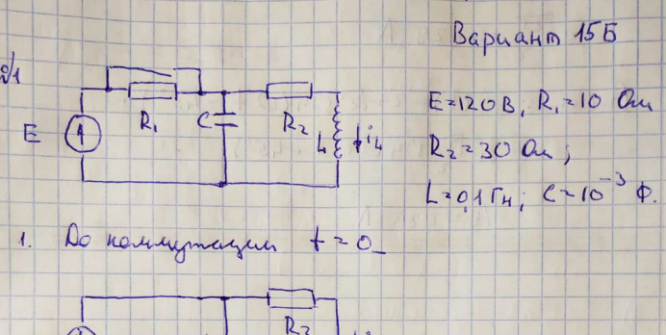 Вариант 15Б
R₁
C
R₂
L
i₄
E
E=120В, R₁=10 Ом
R₂=30 Ом;
L=0,1Гн; C=10⁻³ Ф.
1. До коммутации t=0_
R₂